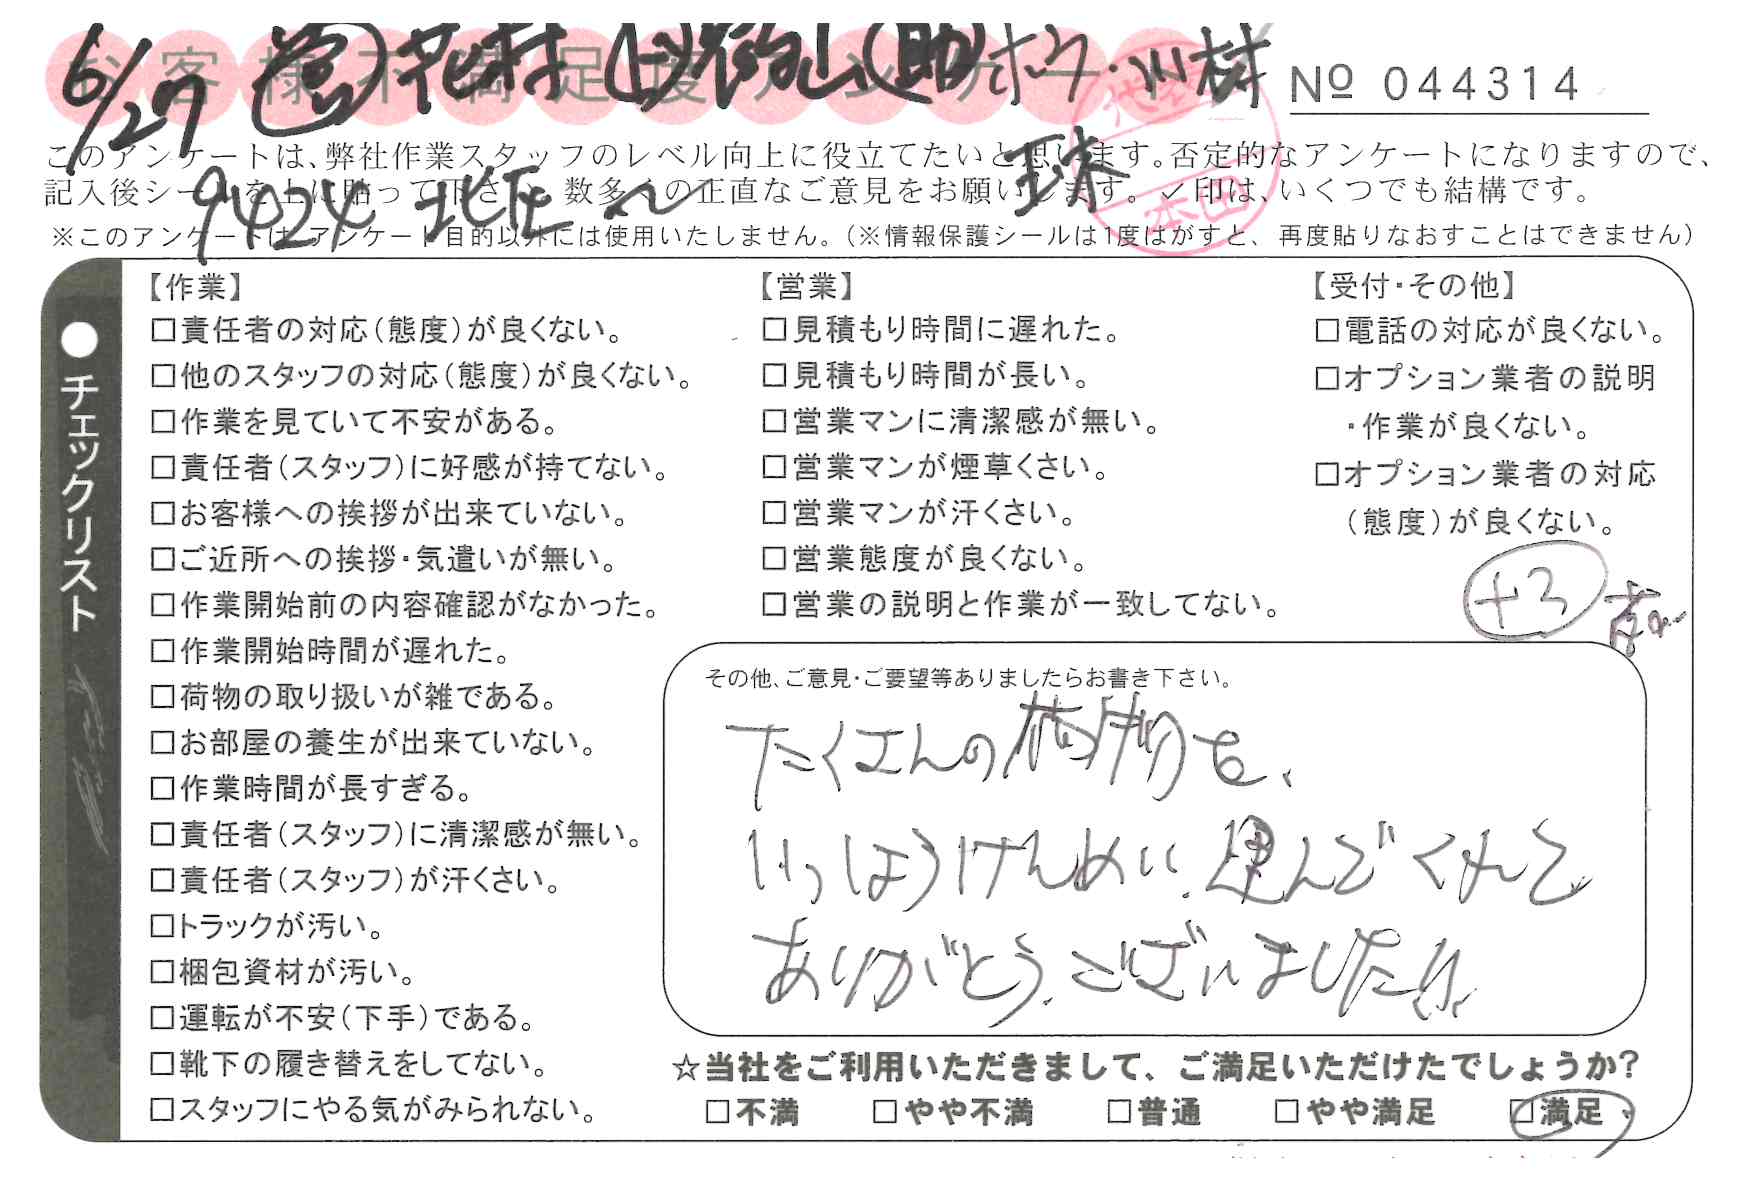 お客様不満足度アンケート
6/27 花村 助 川村
№ 044314
このアンケートは、弊社作業スタッフのレベル向上に役立てたいと思います。否定的なアンケートになりますので、
記入後シールを上に貼って下さい。数多くの正直なご意見をお願いします。✓印は、いくつでも結構です。
9424 北区 〜
本田
※このアンケートは、アンケート目的以外には使用いたしません。（※情報保護シールは1度はがすと、再度貼りなおすことはできません）
●チェックリスト
【作業】
□責任者の対応（態度）が良くない。
□他のスタッフの対応（態度）が良くない。
□作業を見ていて不安がある。
□責任者（スタッフ）に好感が持てない。
□お客様への挨拶が出来ていない。
□ご近所への挨拶・気遣いが無い。
□作業開始前の内容確認がなかった。
□作業開始時間が遅れた。
□荷物の取り扱いが雑である。
□お部屋の養生が出来ていない。
□作業時間が長すぎる。
□責任者（スタッフ）に清潔感が無い。
□責任者（スタッフ）が汗くさい。
□トラックが汚い。
□梱包資材が汚い。
□運転が不安（下手）である。
□靴下の履き替えをしてない。
□スタッフにやる気がみられない。
【営業】
□見積もり時間に遅れた。
□見積もり時間が長い。
□営業マンに清潔感が無い。
□営業マンが煙草くさい。
□営業マンが汗くさい。
□営業態度が良くない。
□営業の説明と作業が一致してない。
【受付・その他】
□電話の対応が良くない。
□オプション業者の説明
・作業が良くない。
□オプション業者の対応
（態度）が良くない。
+3
その他、ご意見・ご要望等ありましたらお書き下さい。
たくさんの荷物を、
いっしょうけんめい、運んでくれて
ありがとう、ございました!!
☆当社をご利用いただきまして、ご満足いただけたでしょうか?
□不満 □やや不満 □普通 □やや満足 □満足